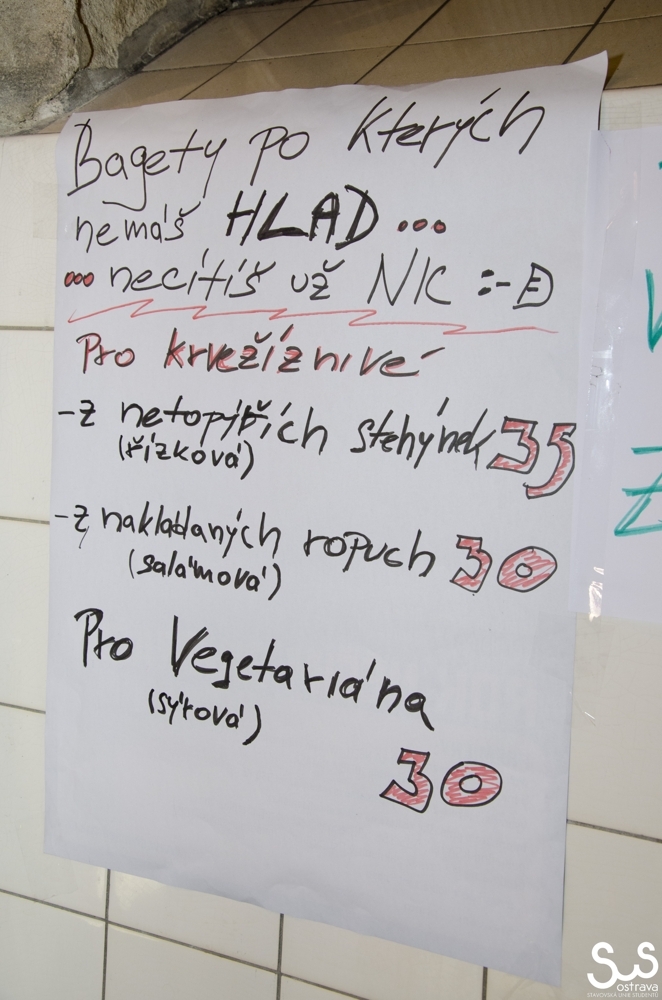 Bagety po kterých
nemáš HLAD ...
... necítíš už NIC :-D
Pro krvežíznivé
-z netopýřích stehýnek 35
(řízková)
-z nakládaných ropuch 30
(salámová)
Pro Vegetariána
(sýrová)
30
SUS
ostrava
STAVOVSKÁ UNIE STUDENTŮ